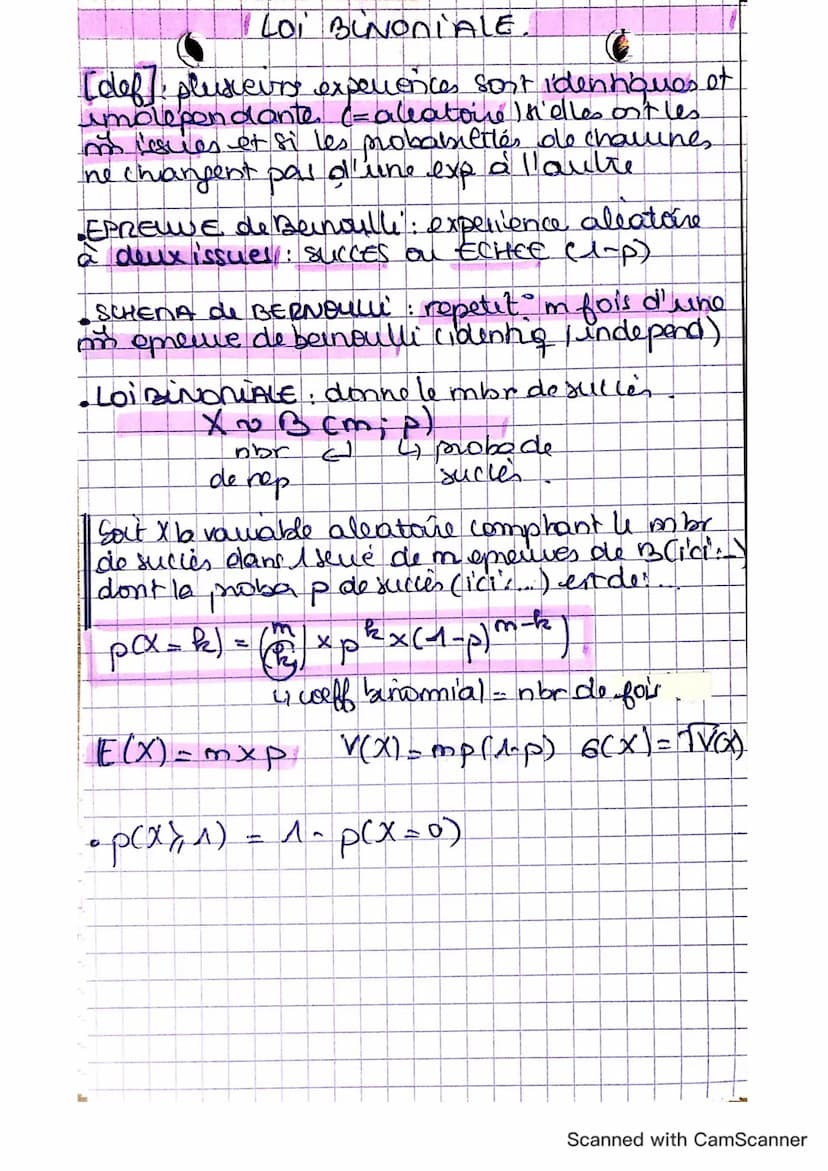 LOi BiNOMiALE.
[def] : plusieurs experiences sont identiques et
independante (= aleatoire) si elles ont les
mm issues et si les probabilités de chacune
ne changent pas d'une exp à l'autre
.EPREUVE de Bernoulli : experience aléatoire
à deux issues : SUCCES ou ECHEC (1-p)
.SCHEMA de BERNOULLI : repetit° n fois d'une
mm epreuve de bernoulli (identiq / independ)
.LOi BiNOMiALE : donne le nbr de succès.
X ~ B (n ; p)
nbr ↵ ↳ proba de
de rep succès.
Soit X la variable aleatoire comptant le nbr
de succès dans 1 serie de n epreuves de B (ici:...)
dont la proba p de succès (ici:...) est de:...
p(X = k) = (n k) × p^k × (1-p)^n-k)
↳ coeff binomial = nbr de fois
E(X) = n x p V(X) = np(1-p) σ(X) = √V(X)
• p(X ⩾ 1) = 1 - p(X = 0)
Scanned with CamScanner